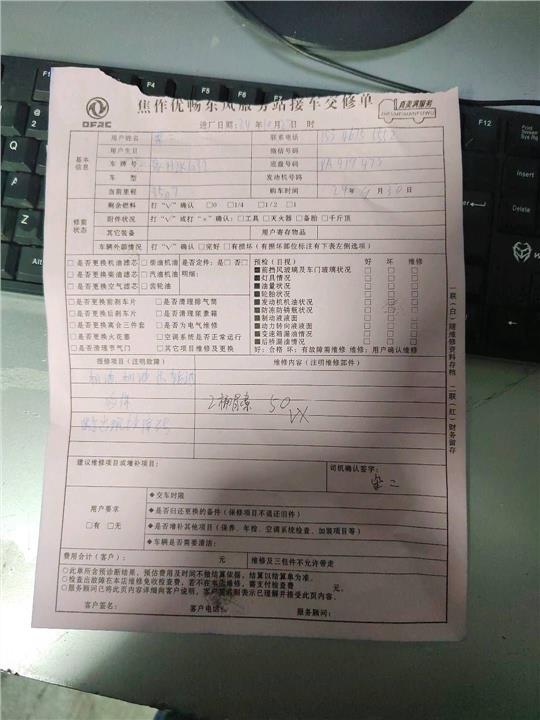 焦作优畅东风服务站接车交修单
真美满服务
ZHENMEIMANFUWU
DFAC
进厂日期: 24 年 月 日 时
基本信息
用户姓名 联系电话
用户生日 微信号码
车牌号 底盘号码 PA419473
车型 发动机号码
当前里程 3507 购车时间 24年9月30日
修前状态
剩余燃料 打“√”确认 □0 □1/4 □1/2 □1
附件状况 打“√”或打“×”确认: □工具 □灭火器 □备胎 □千斤顶
其它装备 用户寄存物品
车辆外部情况 打“√”确认 □完好 □有损坏 (有损坏部位标注有下表左侧选项)
□是否更换机油滤芯 □柴油机油 是否定件: 是□ 否□
□是否更换柴油滤芯 □汽油机油 明细:
□是否更换空气滤芯 □齿轮油
□是否更换前刹车片 □是否清理排气筒
□是否更换后刹车片 □是否清理尿素箱
□是否更换离合三件套 □是否为电气维修
□是否更换火花塞 □空调系统是否正常运行
□是否清理节气门 □其它项目维修及更换
预检(目视) 好 坏 维修
■前挡风玻璃及车门玻璃状况 □ □ □
■灯具情况 □ □ □
■油量状况 □ □ □
■轮胎状况 □ □ □
■发动机机油状况 □ □ □
■防冻防锈瓶状况 □ □ □
■制动液液面 □ □ □
■动力转向液液面 □ □ □
■变速箱漏油情况 □ □ □
■后桥漏油情况 □ □ □
好: 合格 坏: 有故障需维修 维修: 用户确认维修
报修项目(注明故障) 维修内容(注明维修部件)
2桶尿素 50
VX
建议维修项目或增补项目: 司机确认签字:
用户要求
□有 □无
◆交车时限
◆是否归还更换的备件(保修项目不退还旧件)
◆是否增补其他项目(保养、年检、空调系统检查、加装项目等)
◆车辆是否需要清洁:
费用合计(客户): 元 维修及三包件不允许带走
○此单所含预诊断结果、预估费用及时间不做结算依据,结算以结算单为准.
○检查出故障在本店维修免收检查费,若不在本店维修,需支付检查费 元
○服务顾问已将此页内容详细向客户说明,客户签名则表示已理解并接受此页内容.
客户签名: 客户电话: 服务顾问:
一联(白)随维修资料存档 二联(红)财务留存